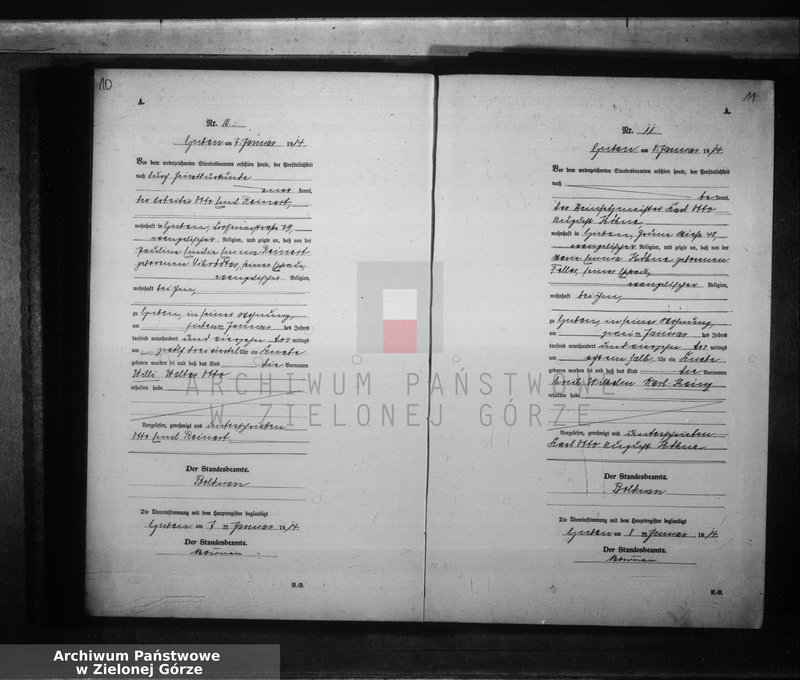 10
A.
Nr. 10.
Guben am 7. Januar 1914
Vor dem unterzeichneten Standesbeamten erschien heute, der Persönlichkeit
nach durch Heiratsurkunde
kannt,
der Arbeiter Otto Emil Reinert,
wohnhaft in Guben, 29,
evangelischer Religion, und zeigte an, daß von der
Pauline Emma Reinert
geborenen seiner Ehefrau
evangelischer Religion,
wohnhaft bei ihm,
zu Guben, in seiner Wohnung,
am siebenten Januar des Jahres
tausend neunhundert und vierzehn mittags
um zwölf dreiviertel Uhr ein Knabe
geboren worden sei und daß das Kind die Vornamen
Willi Walter Otto
erhalten habe.
Vorgelesen, genehmigt und unterschrieben
Otto Emil Reinert
Der Standesbeamte.
Boldman
Die Übereinstimmung mit dem Hauptregister beglaubigt
Guben am 7 ten Januar 1914
Der Standesbeamte.
R.-R.
11
A.
Nr. 11.
Guben am 8. Januar 1914
Vor dem unterzeichneten Standesbeamten erschien heute, der Persönlichkeit
nach
be kannt,
der Karl Otto
August Höhne
wohnhaft in Guben, Grüne Wiese 48,
evangelischer Religion, und zeigte an, daß von der
Maria Emma Höhne geborenen
seiner Ehefrau
evangelischer Religion,
wohnhaft bei ihm,
zu Guben, in seiner Wohnung
am zwei ten Januar des Jahres
tausend neunhundert und vierzehn mittags
um halb Uhr ein Knabe
geboren worden sei und daß das Kind die Vornamen
Erich Wilhelm Karl Heinz
erhalten habe.
Vorgelesen, genehmigt und unterschrieben
Karl Otto August Höhne
Der Standesbeamte.
Boldman
Die Übereinstimmung mit dem Hauptregister beglaubigt
Guben am 8 ten Januar 1914
Der Standesbeamte.
R.-R.
ARCHIWUM PAŃSTWOWE
W ZIELONEJ GÓRZE
Archiwum Państwowe
w Zielonej Górze